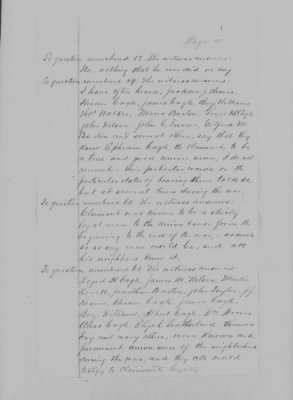 To question numbered 58 the witness answers:
No, nothing that he ever did or say
To question numbered 59. The witness answers:
I have often heard, Jackson J. Davis,
Hiram Cagle, James Cagle, Benj Williams
Thos Walker, Moses Barton,
John Wilson, John C.
Barton and several others, say that they
knew Ephraim Cagle, the Claimant, to be
a true and good union man, I do not
remember their particular words or the
particular dates of hearing them talk so,
but at several times during the war.
To question numbered 60. The witness answers:
Claimant was known to be a strictly
loyal man to the union cause from the
beginning to the end of the war, as much
so as any man could be, and all
his neighbors knew it.
To question numbered 61. The witness answers:
Loyd H Cagle, James M. Wilson, Martin
Jonathan Barton, John Taylor, J.J.
Davis, Hiram Cagle James Cagle
Benj Williams, Albert Cagle, Wm Morris
Alvas Cagle Elijah Sutherland, Thomas
Fry and many others, were known and
prominent union men of the neighborhood
during the war, and they all could
testify to Claimants loyalty